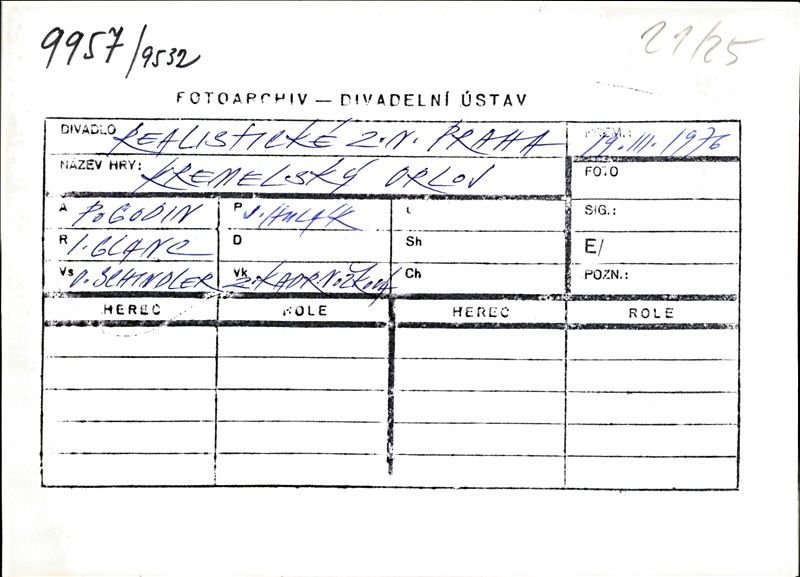 9957/9532
21/25
FOTOARCHIV — DIVADELNÍ ÚSTAV
DIVADLO REALISTICKÉ Z.N. PRAHA PREM.: 19. III. 1976
NÁZEV HRY: KREMELSKÝ ORLOJ FOTO
A POGODIN P J. L SIG.:
R I. GLANC D Sh E/
Vs V. SCHINDLER Vk Z. KADRNOŽKOVÁ Ch POZN.:
HEREC ROLE HEREC ROLE